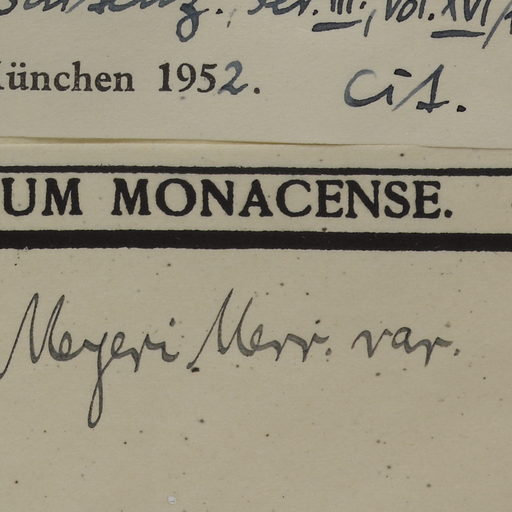 Ser. III., vol. XVI
München 1952. cit.
UM MONACENSE.
Meyeri Merr. var.